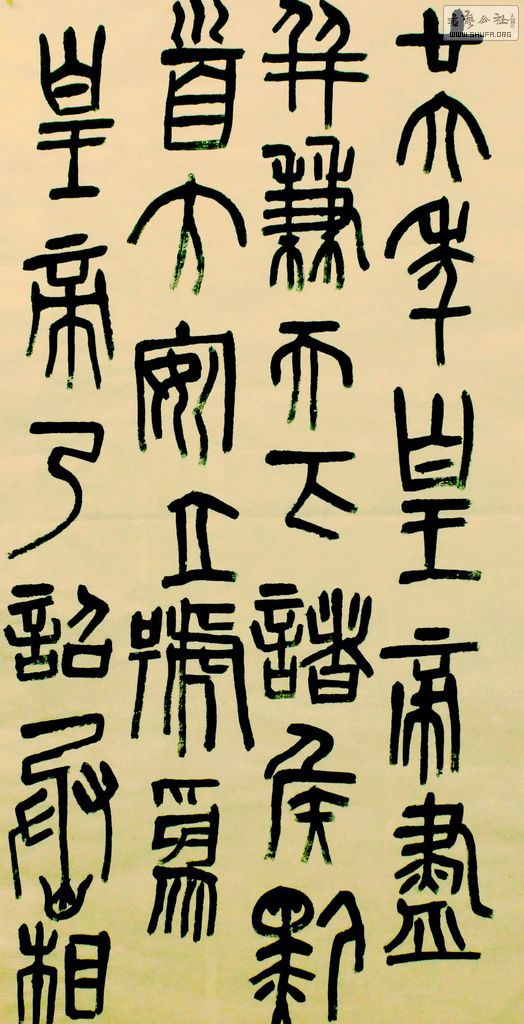 廿六年皇帝盡
并兼天下諸侯黔
首大安立號為
皇帝乃詔丞相
書艺公社
WWW.SHUFA.ORG